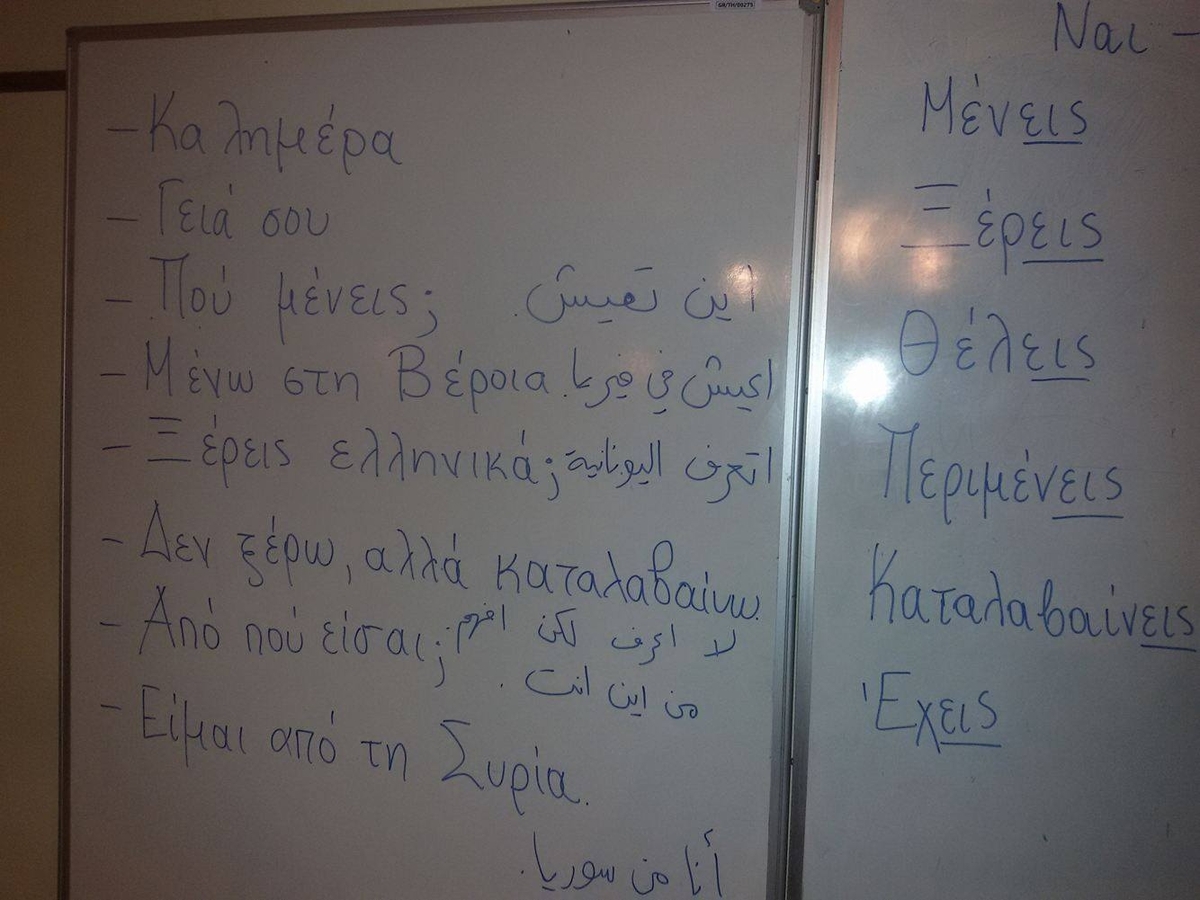 GR/TH/00275
- Καλημέρα
- Γειά σου
- Πού μένεις; اين تعيش.
- Μένω στη Βέροια. اعيش في فيريا
- Ξέρεις ελληνικά; اتعرف اليونانية
- Δεν ξέρω, αλλά καταλαβαίνω.
لا اعرف لكن افهم
- Από πού είσαι;
من اين انت.
- Είμαι από τη Συρία.
أنا من سوريا.
Ναι -
Μένεις
Ξέρεις
Θέλεις
Περιμένεις
Καταλαβαίνεις
Έχεις